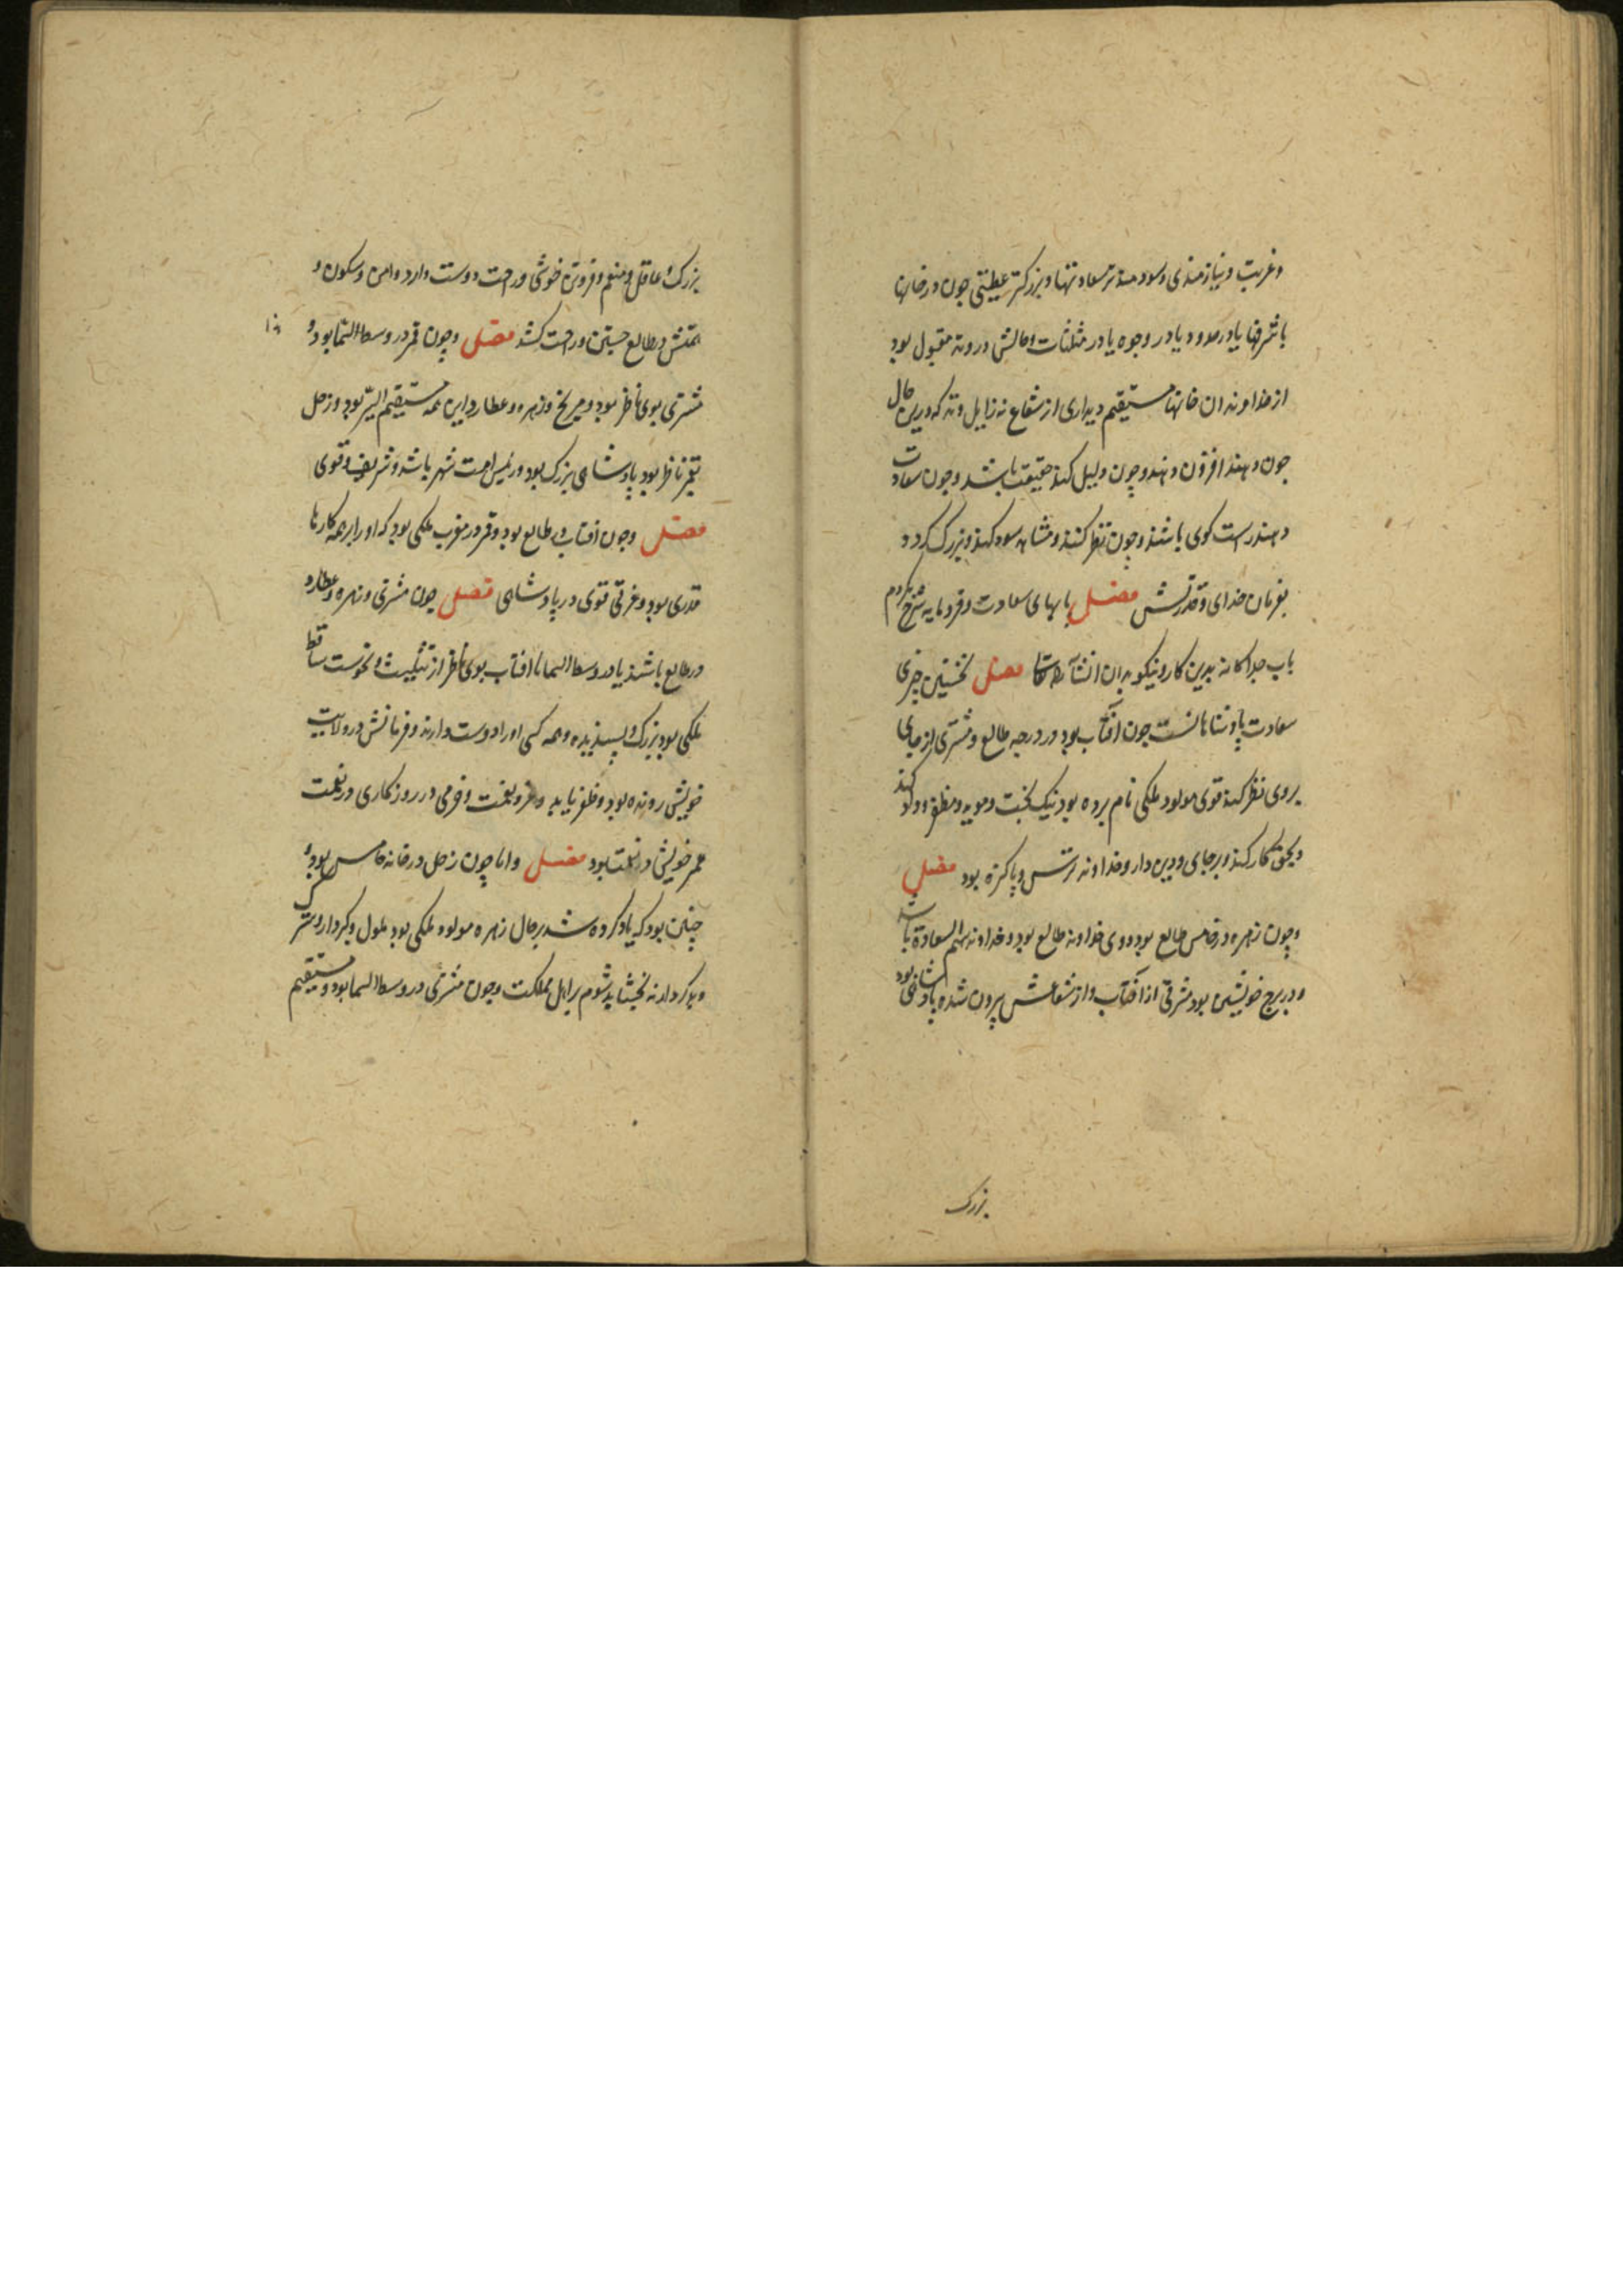 وغربت ونیازمندی وسودمندتر سعادتها وبزرکتر عطیتی چون درخانها
با شرفها یا درحدود یا در وجوه یا در مثلثات وحالش در وتد مقبول بود
از خداوندان خانها مستقیم دیداری از شعاع نه زایل وتد که درین حال
چون دهند افزون دهند وچون دلیل کنند حقیقت باشد وچون سعادت
دهند راست کوی باشند وچون نظر کنند ومشاهد سود کنند وبزرک کردد
بفرمان خدای وقدرتش فصل بابهای سعادت وفرومایه شرح کردم
باب جداکانه بدین کار ونیکو بدان انشآء الله تعالی فصل نخستین چیزی
سعادت پادشاهانست چون آفتاب بود در درجه طالع ومشتری از جای
بروی نظر کند قوی مولود ملکی نام برده بود نیک بخت وموید ومظفر وداد کند
وبحق کار کند وبرجای ودین دار وخداوند ترس وپاکیزه بود فصل
وچون زهره درخامس طالع بود ووی خداوند طالع بود وخداوند سهم السعادة باشد
ودر برج خویشین بود مشرقی از آفتاب واز شعاعش بیرون شده پادشاهی بود
بزرک
بزرک وعاقل ومنعم وفروتن خوشی وراحت دوست دارد وامن وسکون و
همتش درطالع جستن وراحت کشد فصل وچون قمر در وسط السّما بود و
مشتری بوی ناظر بود ومریخ وزهره وعطارد واین همه مستقیم السّیر بود وزحل
بقمر ناظر بود پادشاهی بزرک بود ورئیس امت شهر باشد وشریف وقوی
فصل وچون افتاب در طالع بود وقمر در مغرب ملکی بود که او را بر همه کارها
قدری بود وغرقی قوی در پادشاهی فصل چون مشتری وزهره وعطارد
درطالع باشند یا در وسط السما با افتاب بوی ناظر از تثلیث ونحوست ساقط
ملکی بود بزرک وپسندیده وهمه کسی او را دوست دارند وفرمانش در ولایت
خویش رونده بود وظفر یابد وعز ونعمت وخرمی در روزکاری در نعمت
عمر خویش در نعمت بود فصل واما چون زحل درخانه خامس بود و
چنین بود که یاد کرده شد بر حال زهره مولود ملکی بود ملول وبدکردار وسترک
وبدکردار نه بخشاید شوم بر اهل مملکت وچون مشتری در وسط السما بود ومستقیم